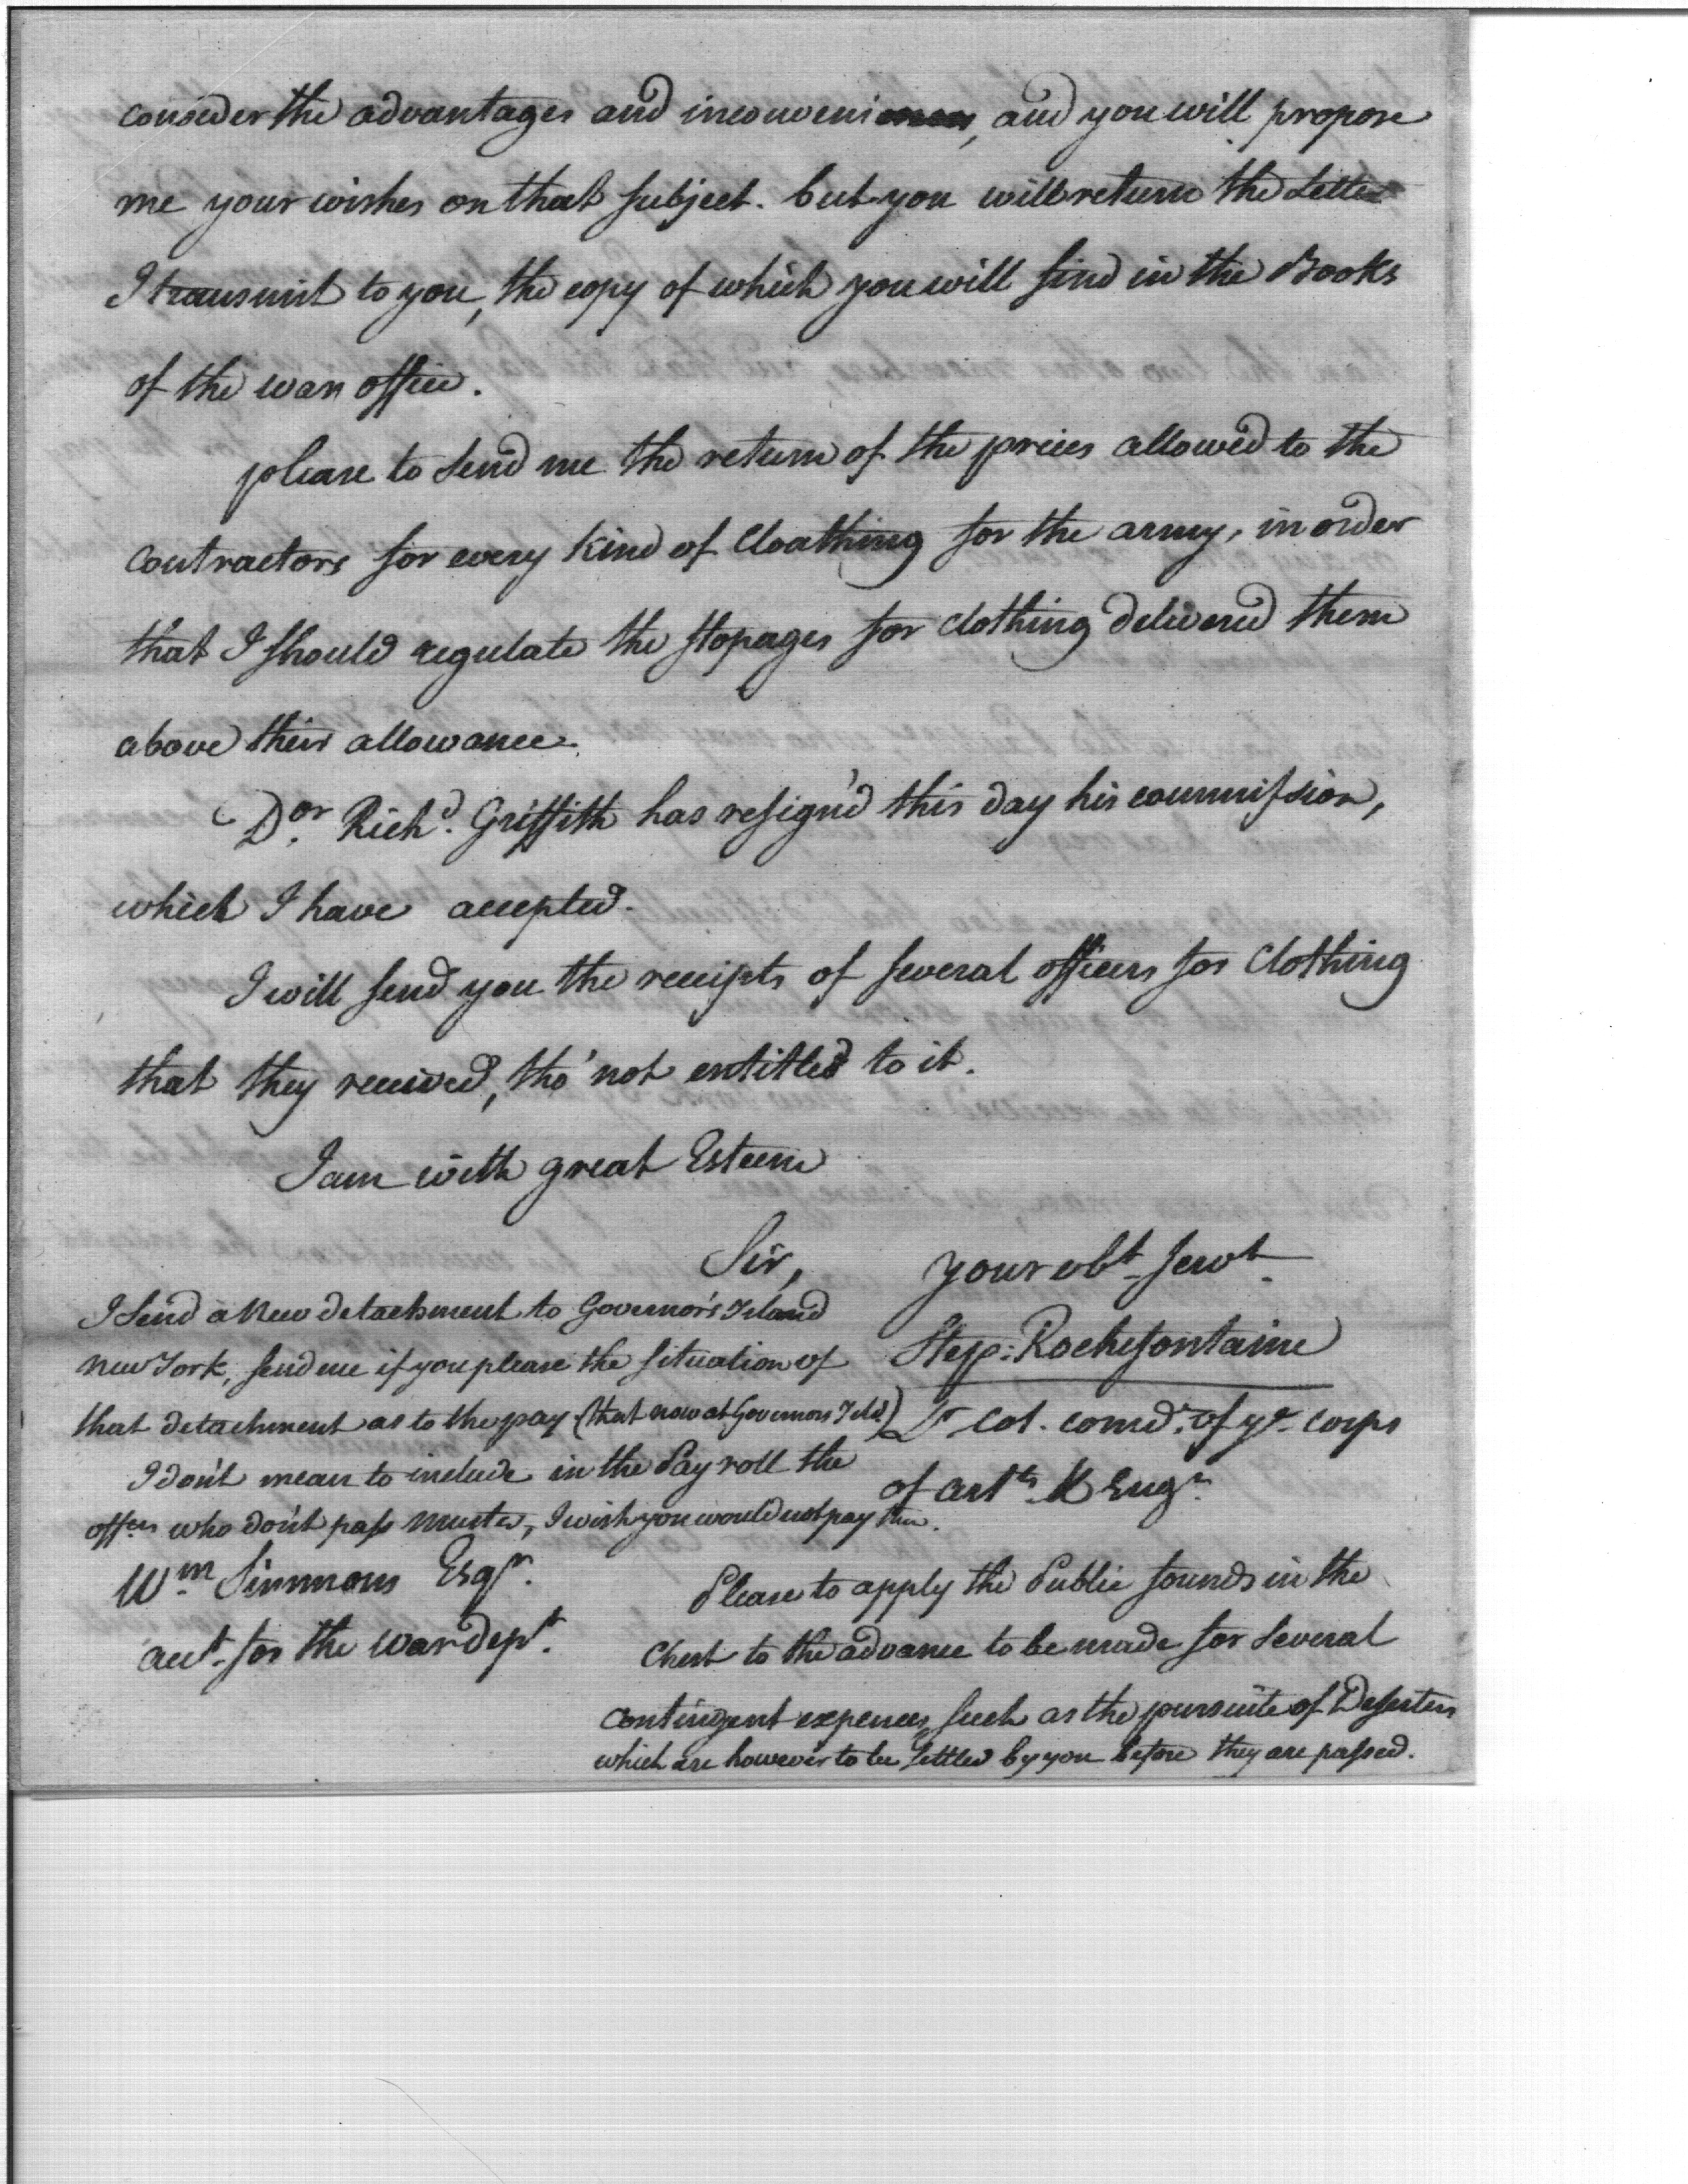 consider the advantages and inconveniences, and you will propose
me your wishes on that subject. but you will return the Letter
I transmit to you, the copy of which you will find in the Books
of the war office.
please to send me the return of the prices allowed to the
contractors for every Kind of Cloathing for the army, in order
that I should regulate the stopages for Clothing delivered them
above their allowance.
Dor. Richd. Griffith has resign'd this day his commission,
which I have accepted.
I will send you the receipts of several officers for Clothing
that they received, tho' not entitled to it.
I am with great Esteem
Sir,
your obt. servt.
Step: Rochefontaine
Lt Col. comdt. of ye. corps
of artts. & Engrs.
I Send a New detachment to Governor's Island
new York, send me if you please the situation of
that detachment as to the pay (that now at Governors Isld.)
I don't mean to include in the Pay roll the
offers who don't pass muster, I wish you would not pay them.
Wm Simmons Esqr.
acct. for the war dept.
Please to apply the Public founds in the
Chest to the advance to be made for Several
Contingent expences, such as the pursuite of Deserters
which are however to be Settled by you before they are passed.